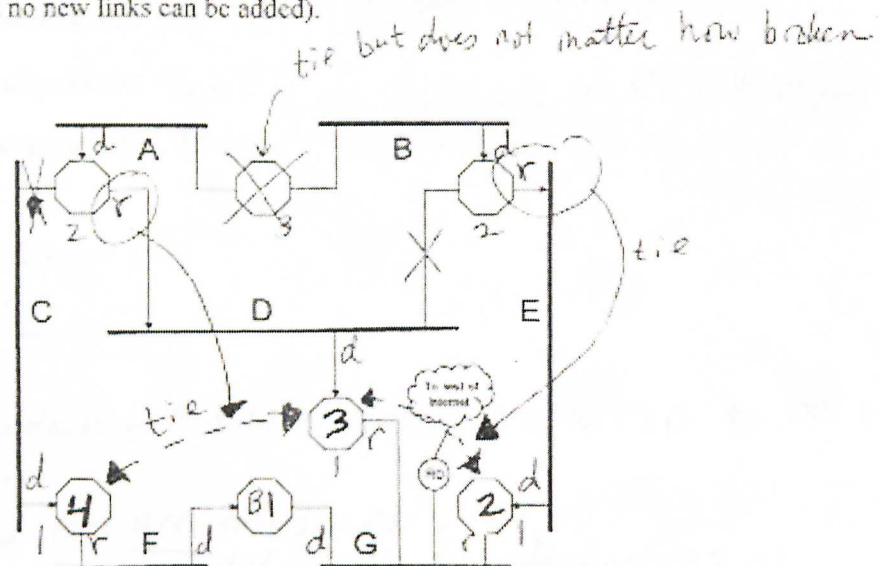 no new links can be added).
tie but does not matter how broken
d A B d
r r
2 3 2
tie
C D E
d
tie
To rest of
Internet
3
r
1
d d
4 B1 2
1 r F d d G r 1